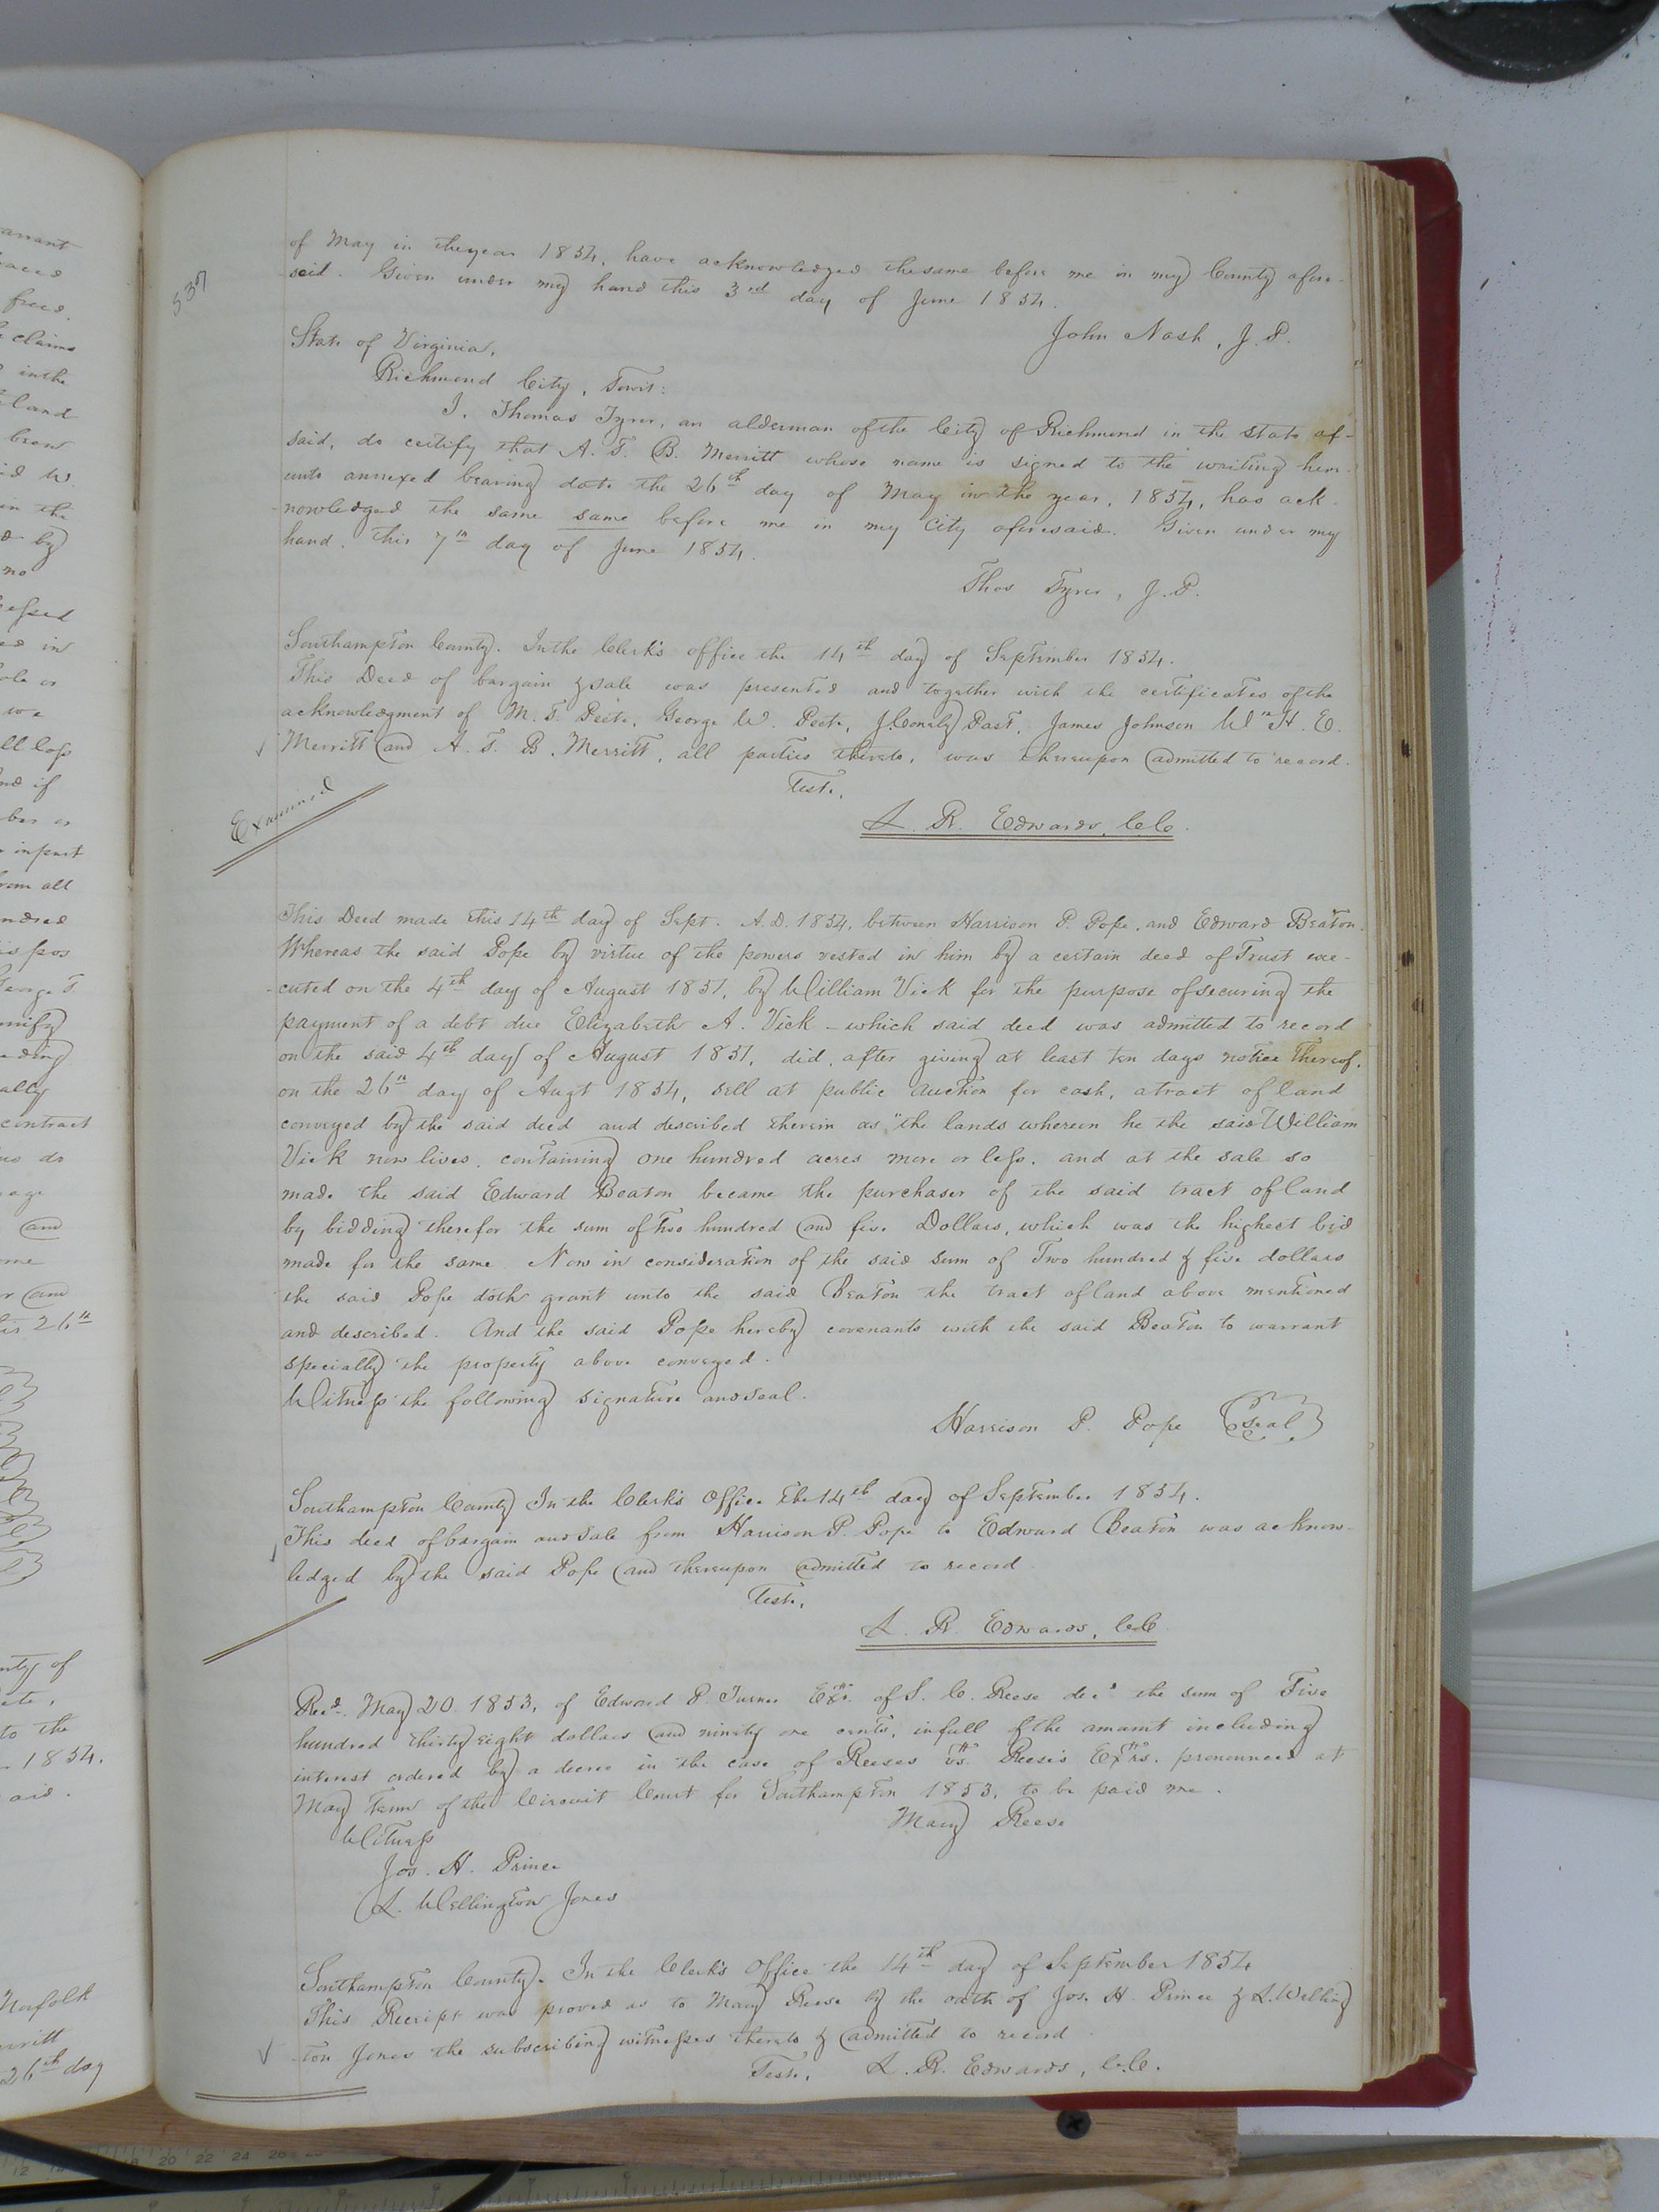 537
of May in the year 1854, have acknowledged the same before me in my County afore-
said. Given under my hand this 3rd day of June 1854.
John Nash, J. P.
State of Virginia,
Richmond City, Towit:
I, Thomas Tyrer, an alderman of the City of Richmond in the State af-
said, do certify that A. T. B. Merritt whose name is signed to the writing here-
unto annexed bearing date the 26th day of May in the year, 1854, has ack-
nowledged the same same before me in my City aforesaid. Given under my
hand, this 7th day of June 1854.
Thos Tyrer, J. P.
Southampton County. In the Clerk's office the 14th day of September 1854.
This Deed of bargain & sale was presented and together with the certificates of the
acknowledgment of M. T. Peete, George W. Peete, J. Conaly Past, James Johnson Wm H. E.
Merritt and A. T. B. Merritt, all parties thereto, was thereupon admitted to record.
Teste,
L. R. Edwards, C.C.
Examined
This Deed made this 14th day of Sept. A.D. 1854, between Harrison P. Pope, and Edward Beaton.
Whereas the said Pope by virtue of the powers vested in him by a certain deed of Trust exe-
-cuted on the 4th day of August 1851, by William Vick for the purpose of securing the
payment of a debt due Elizabeth A. Vick - which said deed was admitted to record
on the said 4th day of August 1851, did, after giving at least ten days notice thereof,
on the 26th day of Augt 1854, sell at public auction for cash, a tract of land
conveyed by the said deed and described therein as "the lands wherein he the said William
Vick now lives, containing one hundred acres more or less, and at the sale so
made the said Edward Beaton became the purchaser of the said tract of land
by bidding therefor the sum of two hundred and five Dollars, which was the highest bid
made for the same. Now in consideration of the said sum of Two hundred & five dollars
the said Pope doth grant unto the said Beaton the tract of land above mentioned
and described. And the said Pope hereby covenants with the said Beaton to warrant
specially the property above conveyed.
Witness the following signature and seal.
Harrison P. Pope {seal}
Southampton County In the Clerk's Office the 14th day of September 1854.
This deed of bargain and sale from Harrison P. Pope to Edward Beaton was acknow-
ledged by the said Pope and thereupon admitted to record
Teste,
L. R. Edwards, C.C.
Recd. May 20 1853, of Edward P. Turner Exr. of S. C. Reese decd the sum of Five
hundred thirty eight dollars and ninety one cents, in full of the amount including
interest ordered by a decree in the case of Reeses vs. Reese's Exrs. pronounced at
May term of the Circuit Court for Southampton 1853, to be paid me.
Mary Reese
Witness
Jos. H. Prince
L. Wellington Jones
Southampton County. In the Clerk's Office the 14th day of September 1854
This Receipt was proved as to Mary Reese by the oath of Jos. H. Prince & L. Welling
ton Jones the subscribing witnesses thereto & admitted to record
Teste, L. R. Edwards, C.C.